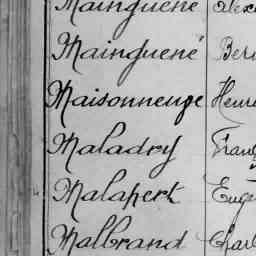 Mainguené
Mainguené Ber
Maisonneuve Henri
Maladry Fran
Malapert Eug
Malbrand Charl